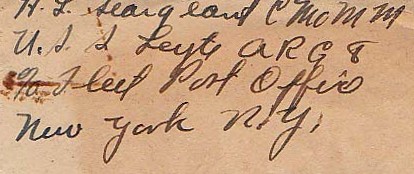 H. L. Seargeant CMoMM
U.S.S Leyte ARG 8
℅ Fleet Post Office
New York N.Y.